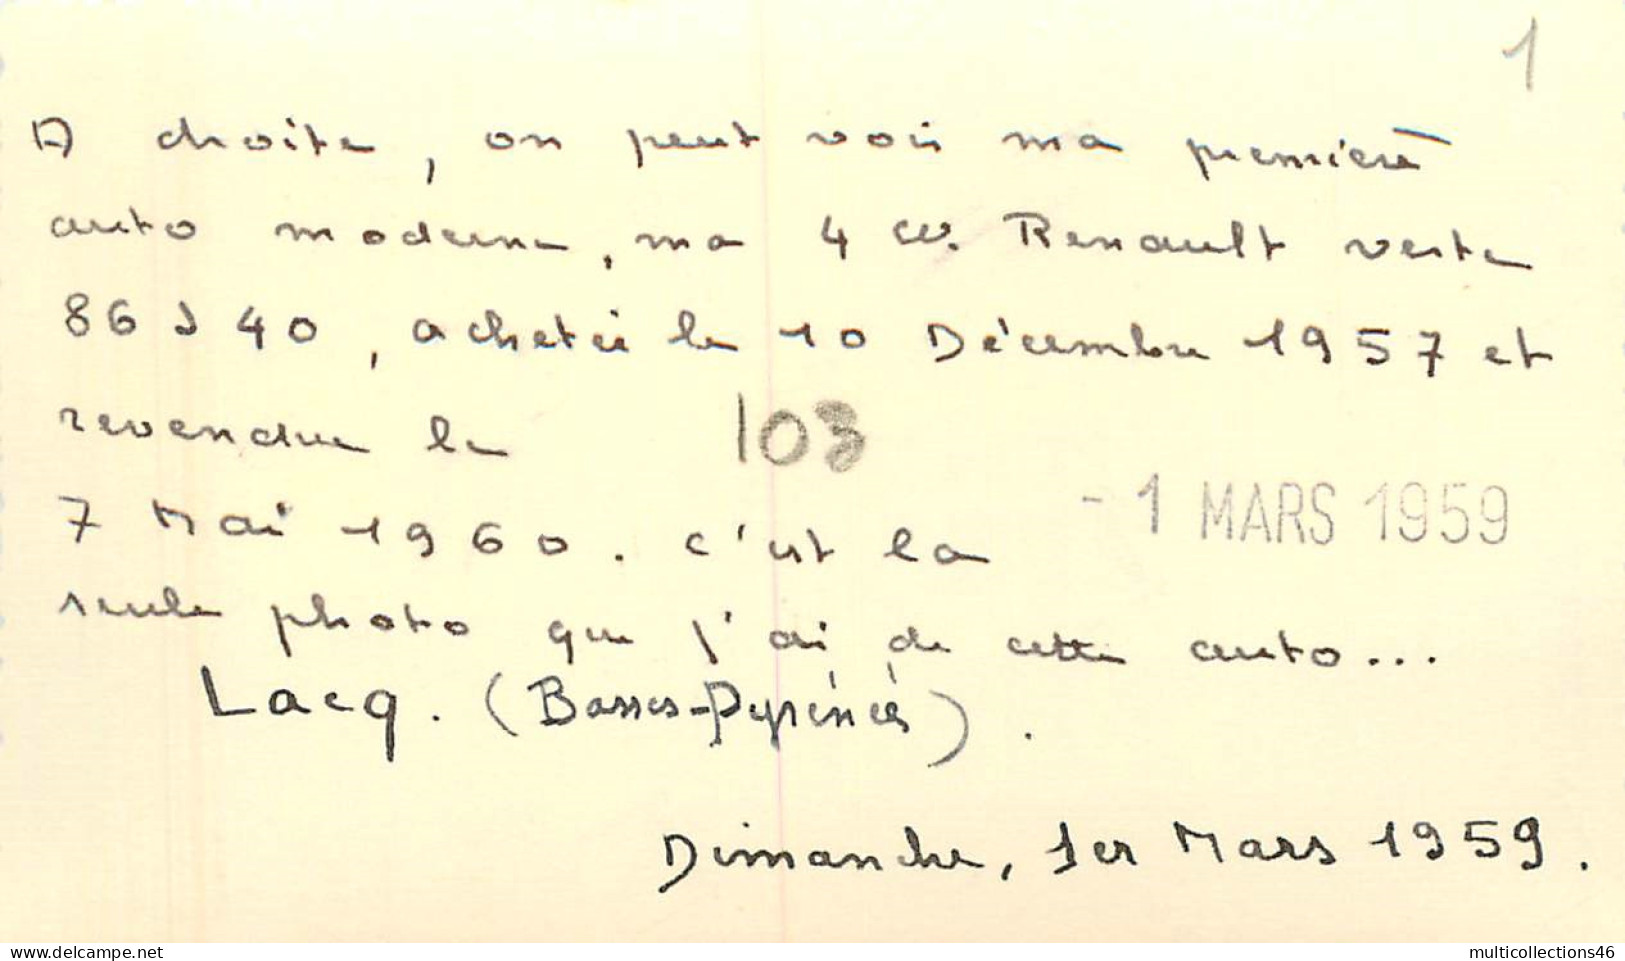 1
A droite, on peut voir ma première
auto moderne, ma 4 cv. Renault verte
86 J 40, achetée le 10 Décembre 1957 et
revendue le
103
7 Mai 1960. c'est la
- 1 MARS 1959
seule photo que j'ai de cette auto...
Lacq. (Basses-Pyrénées).
Dimanche, 1er Mars 1959.
delcampe.net
multicollections46